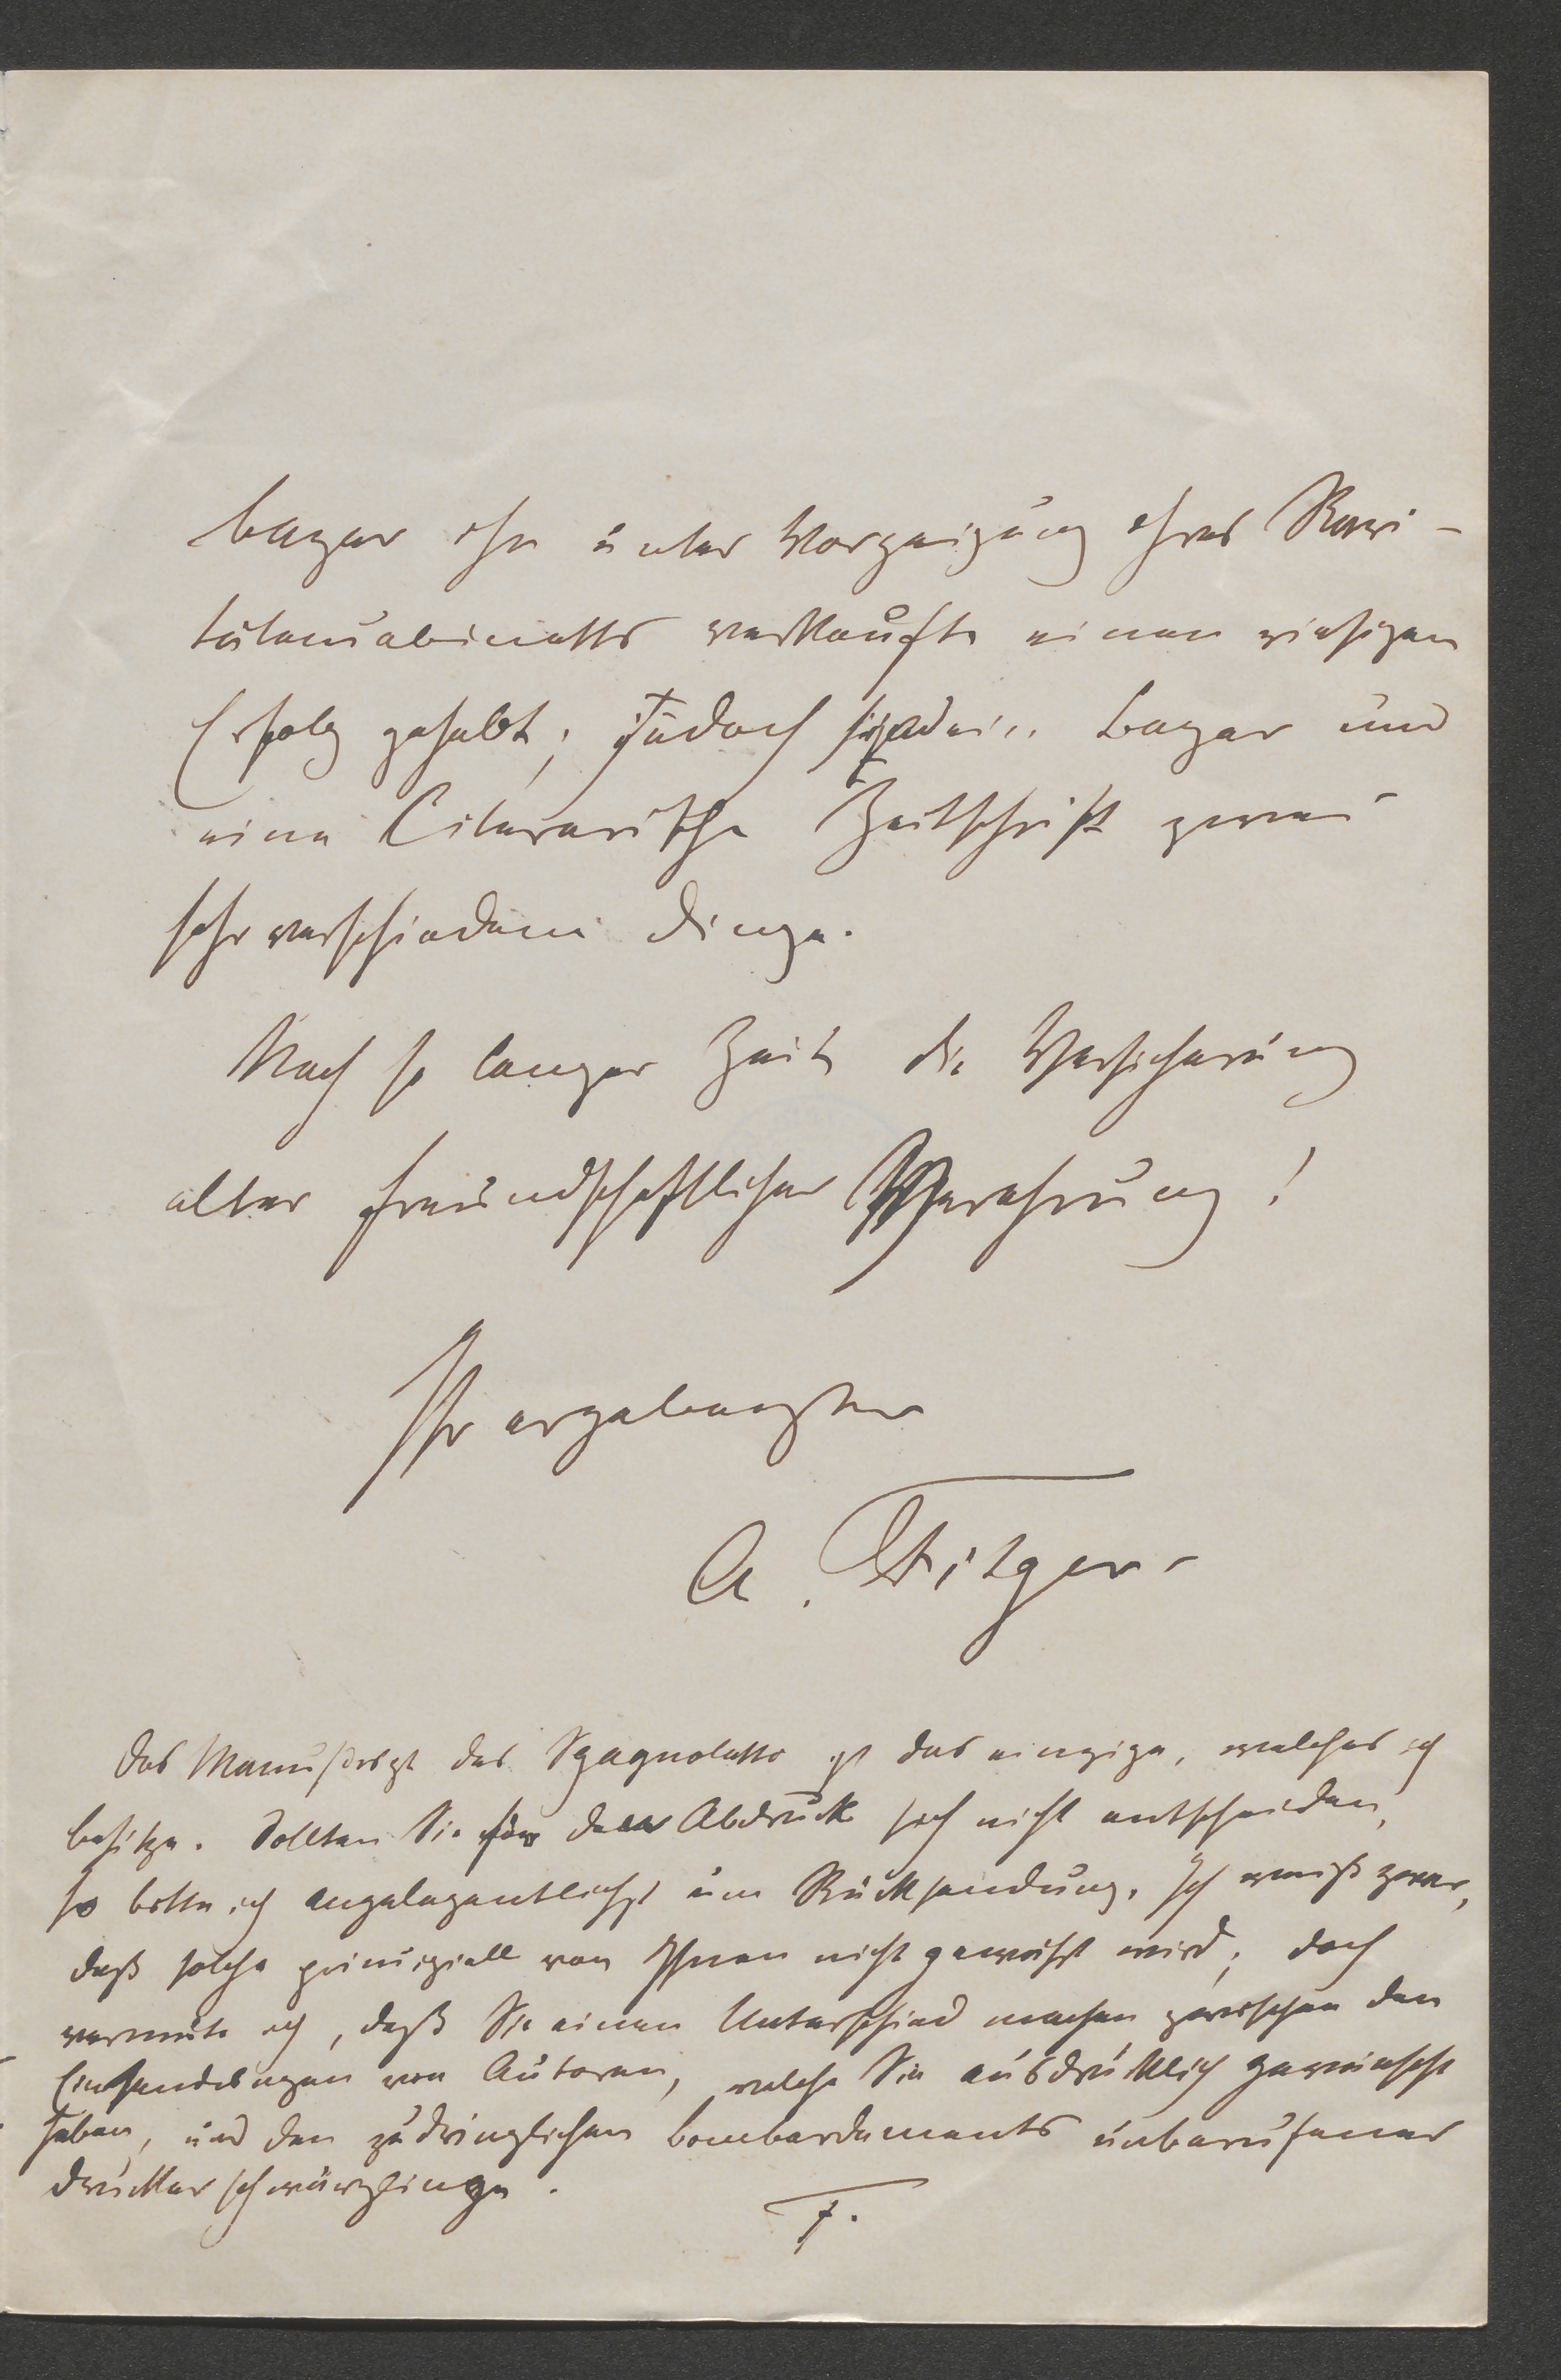 bazar ihn unter Vorzeigung ihres Rari-
tätencabinetts verkaufte einen riesigen
Erfolg gehabt; jedoch sind ein Bazar und
eine Literarische Zeitschrift zwei
sehr verschiedene Dinge.
Nach so langer Zeit die Versicherung
alter freundschaftlicher Verehrung!
Ihr ergebenster
A. Fitger.
Das Manuskript des Spagnoletto ist das einzige, welches ich
besitze. Sollten Sie für den Abdruck sich nicht entscheiden,
so bitte ich angelegentlichst um Rücksendung. Ich weiß zwar,
daß solche principiell von Ihnen nicht gewährt wird; doch
vermute ich, daß Sie einen Unterschied machen zwischen den
Einsendungen von Autoren, welche Sie ausdrücklich gewünscht
haben, und den zudringlichen Bombardements unberufener
Druckerschwärzlinge.
F.